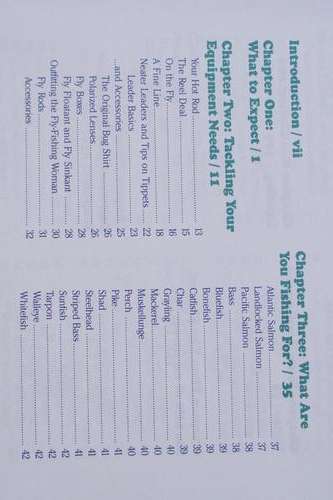 Introduction / vii
Chapter One:
What to Expect / 1
Chapter Two: Tackling Your
Equipment Needs / 11
Your Hot Rod 13
The Reel Deal 15
On the Fly 16
A Fine Line 18
Neater Leaders and Tips on Tippets 22
Leader Basics 23
...and Accessories 25
The Original Bug Shirt 26
Polarized Lenses 26
Fly Boxes 28
Fly Floatant and Fly Sinkant 28
Outfitting the Fly-Fishing Woman 30
Fly Rods 31
Accessories 32
Chapter Three: What Are
You Fishing For? / 35
Atlantic Salmon 37
Landlocked Salmon 37
Pacific Salmon 38
Bass 38
Bluefish 39
Bonefish 39
Catfish 39
Char 39
Grayling 40
Mackerel 40
Muskellunge 40
Perch 40
Pike 41
Shad 41
Steelhead 41
Striped Bass 41
Sunfish 42
Tarpon 42
Walleye 42
Whitefish 42